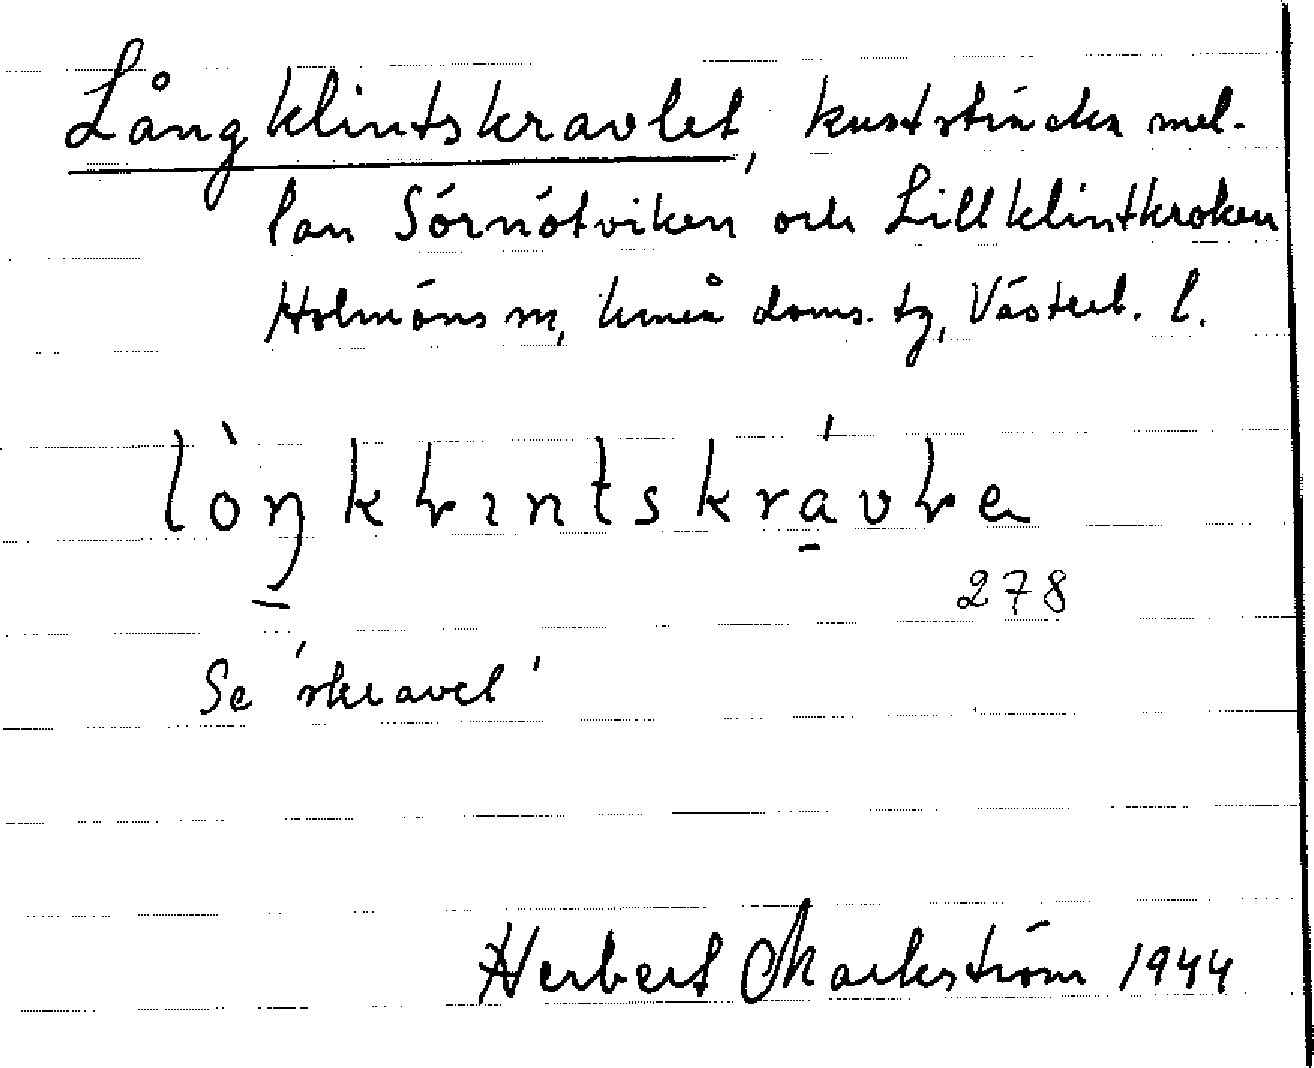 Långklintskravlet, kuststräcka mel-
lan Sörnötviken och Lillklintkroken
Holmöns sn, Umeå doms. tg, Västerb. l.
lòŋkɫɩntskrávɫe
278
Se 'skravel'
Herbert Markström 1944